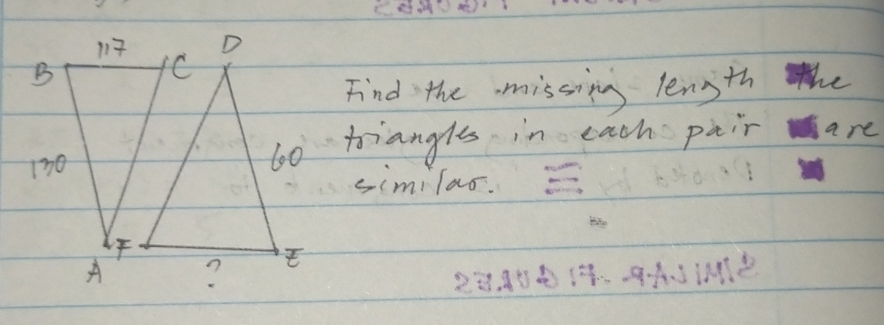 117
B C D
Find the missing length the
triangles in each pair are
130 60 similar.
A F ? E
SIMILAR FIGURES